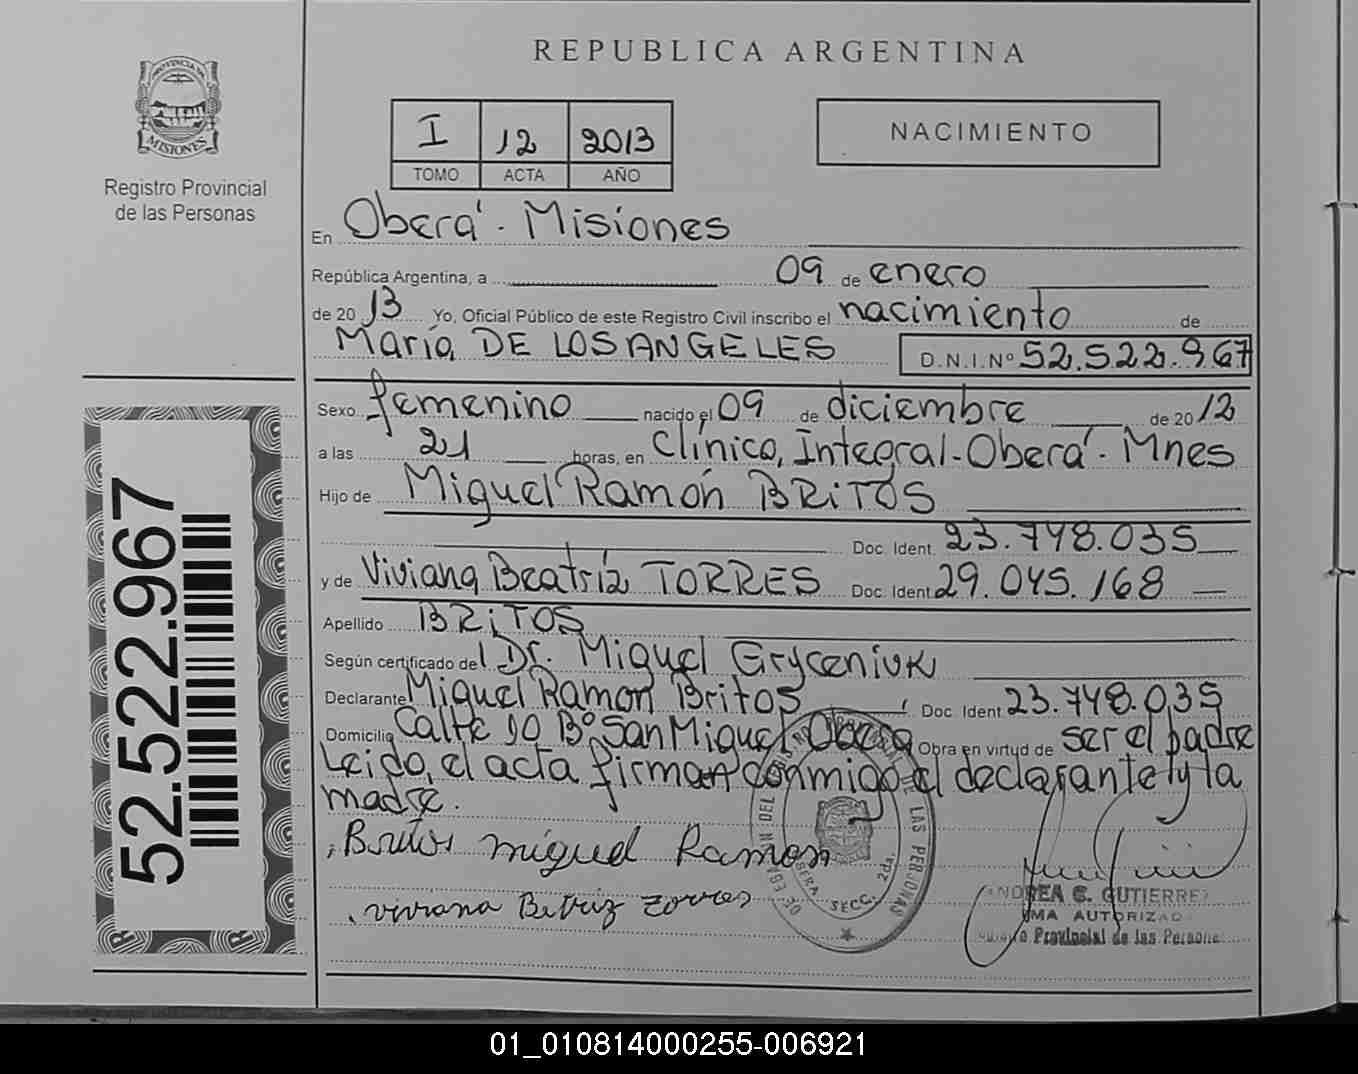 REPUBLICA ARGENTINA
PROVINCIA DE
MISIONES
Registro Provincial
de las Personas
I 12 2013
TOMO ACTA AÑO
NACIMIENTO
En Oberá - Misiones
República Argentina, a 09 de enero
de 2013 Yo, Oficial Público de este Registro Civil inscribo el nacimiento de
María DE LOS ANGELES D.N.I. Nº 52.522.967
Sexo femenino nacido el 09 de diciembre de 2012
a las 21 horas, en Clínica Integral - Oberá - Mnes
Hijo de Miguel Ramón BRITOS
Doc. Ident. 23.748.035
y de Viviana Beatriz TORRES Doc. Ident. 29.045.168
Apellido BRITOS
Según certificado del Dr. Miguel Gryceniuk
Declarante Miguel Ramon Britos Doc. Ident. 23.748.035
Domicilio Calle 90 Bº San Miguel Obera Obra en virtud de ser el padre
Leida el acta firman conmigo el declarante y la
madre.
Britos miguel Ramon
viviana Betriz torres
SECC. 2da.
DE LAS PERSONAS
ANDREA C. GUTIERREZ
AUTORIZAD
Provincial de las Persone
52.522.967
01_010814000255-006921